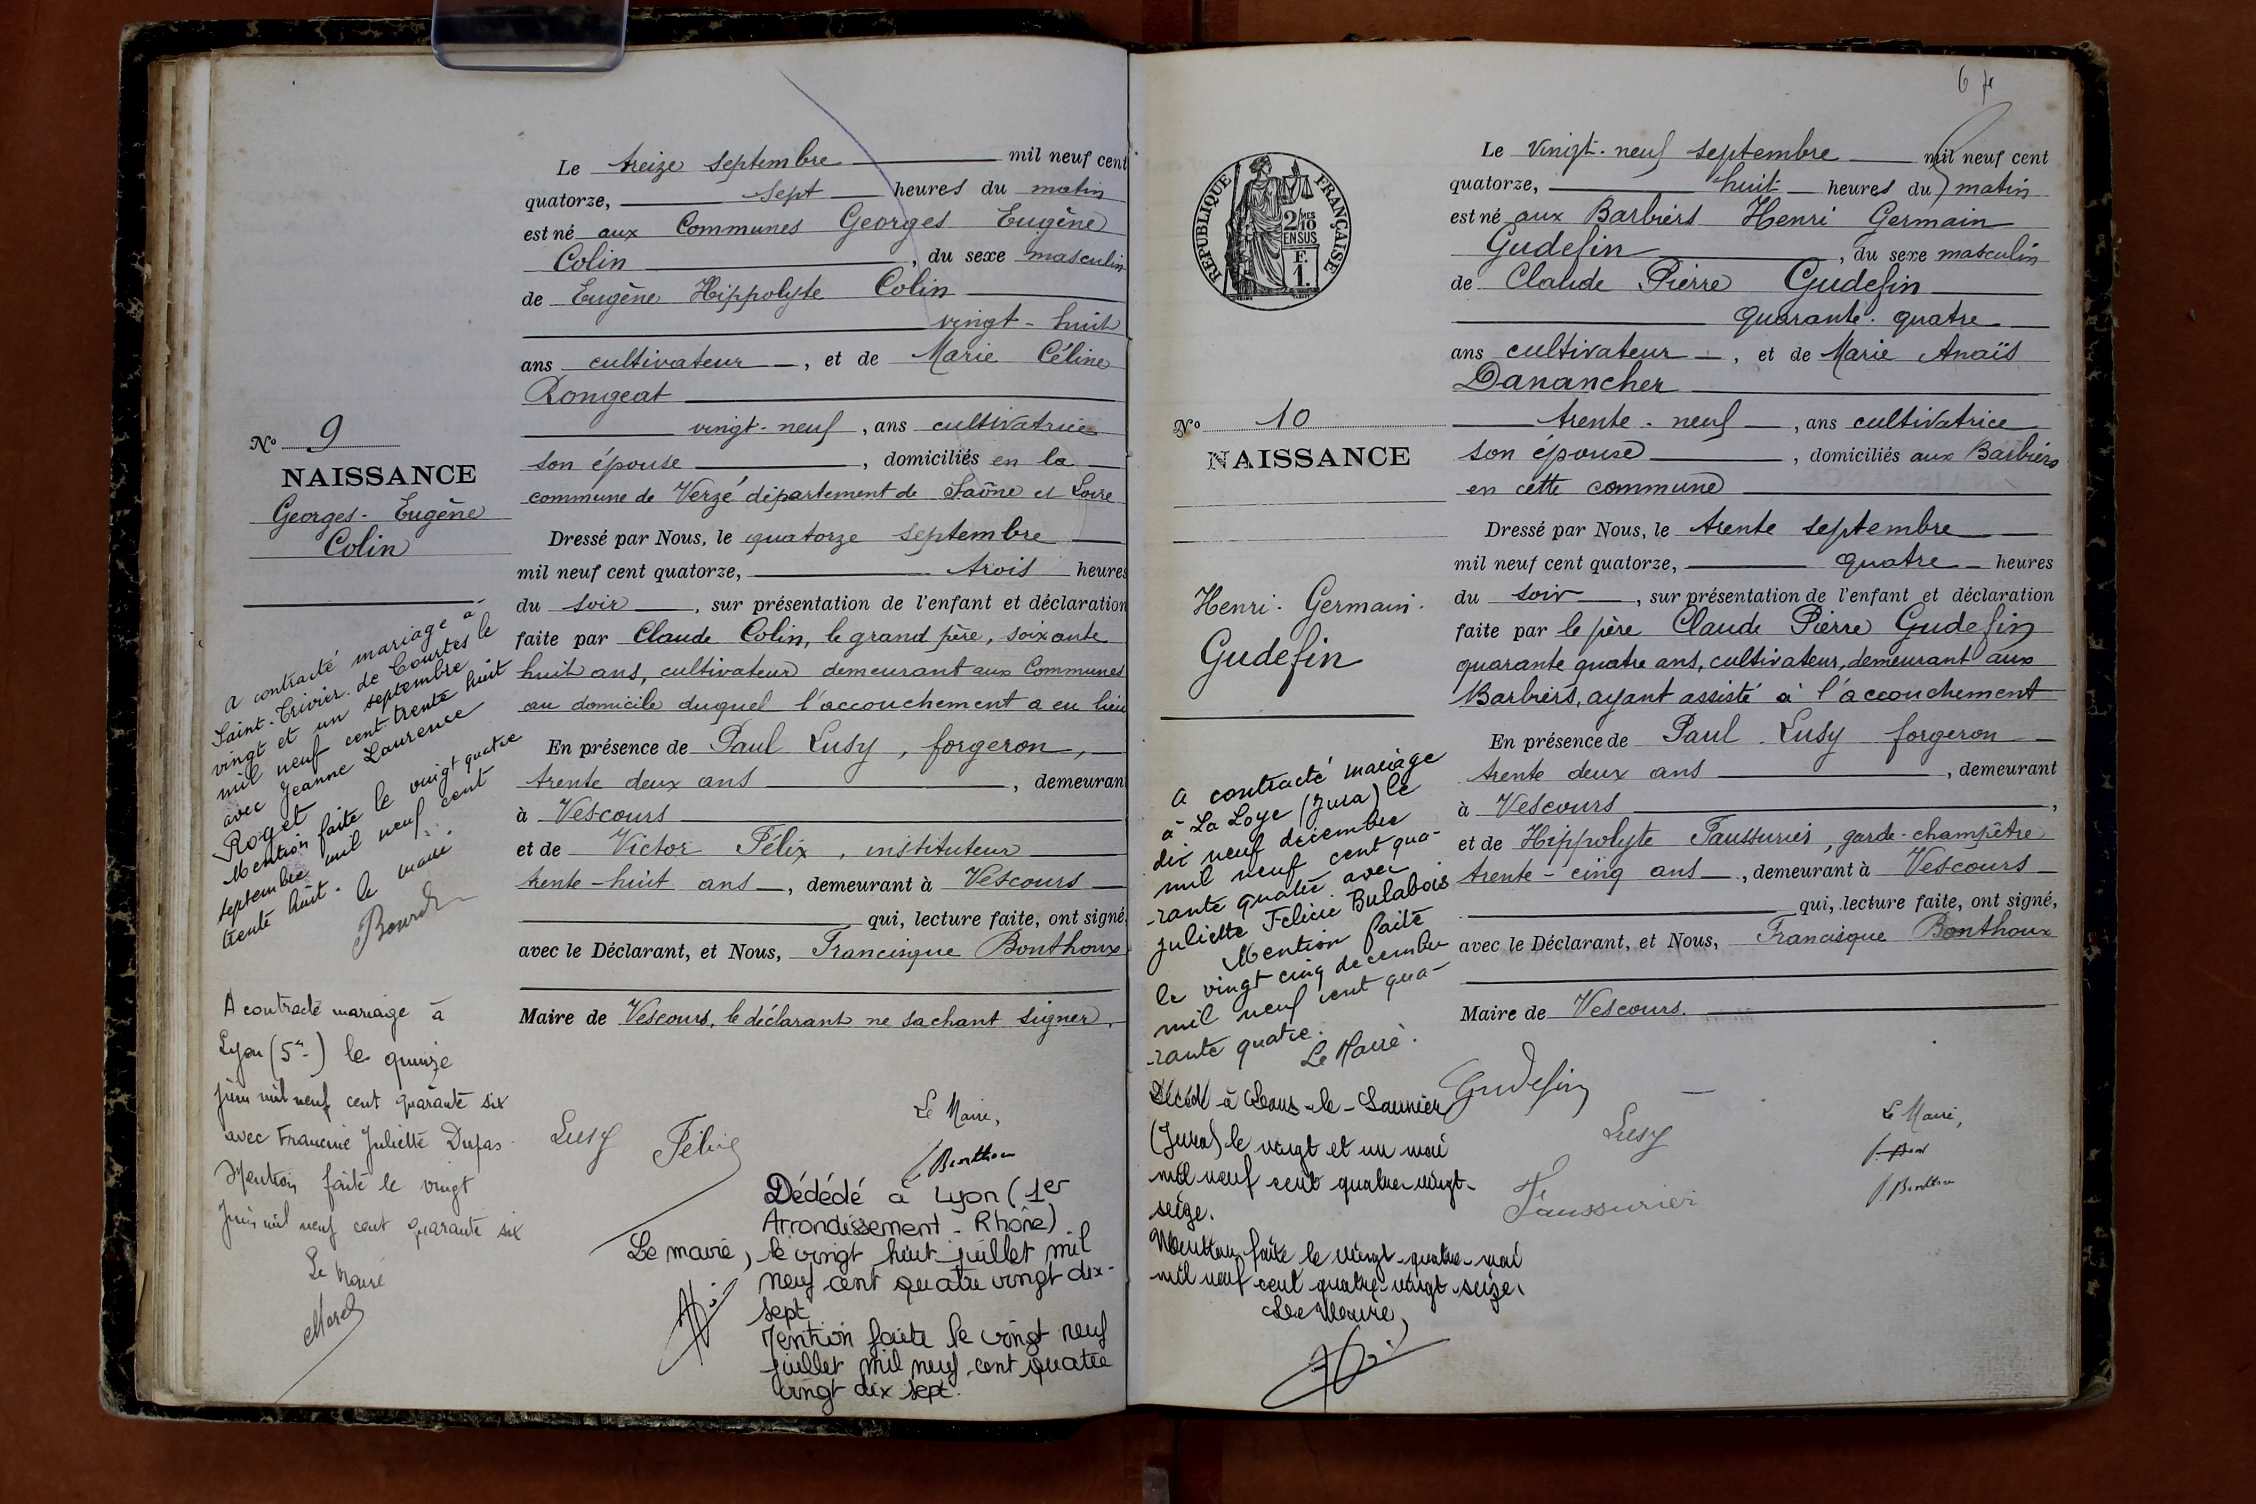 Le treize septembre mil neuf cent
quatorze, sept heures du matin
est né aux Communes Georges Eugène
Colin, du sexe masculin
de Eugène Hippolyte Colin
vingt-huit
ans cultivateur, et de Marie Céline
Rongeat
vingt-neuf, ans cultivatrice
son épouse, domiciliés en la
commune de Verzé département de Saône et Loire
Dressé par Nous, le quatorze septembre
mil neuf cent quatorze, trois heures
du soir, sur présentation de l'enfant et déclaration
faite par Claude Colin, le grand père, soixante
huit ans, cultivateur demeurant aux Communes
au domicile duquel l'accouchement a eu lieu
En présence de Paul Lusy, forgeron,
trente deux ans, demeuran
à Vescours
et de Victor Félix, instituteur
trente-huit ans, demeurant à Vescours
qui, lecture faite, ont signé
avec le Déclarant, et Nous, Francisque Bonthoux
Maire de Vescours, le déclarant ne sachant signer.
Lusy
Félix
Le Maire,
F. Bonthoux
Nº 9
NAISSANCE
Georges-Eugène
Colin
A contracté mariage à
Saint-Trivier-de-Courtes le
vingt et un septembre
mil neuf cent trente huit
avec Jeanne Laurence
Roget
Mention faite le vingt quatre
septembre mil neuf cent
trente huit. le maire
A contracté mariage à
Lyon (5e) le quinze
juin mil neuf cent quarante six
avec Francine Juliette Dufas
Mention faite le vingt
juin mil neuf cent quarante six
Le Maire
Morel
Dédédé à Lyon (1er
Arrondissement - Rhône)
le vingt huit juillet mil
neuf cent quatre vingt dix-
sept
Mention faite le vingt neuf
juillet mil neuf cent quatre
vingt dix sept.
Le maire,
RÉPUBLIQUE FRANÇAISE
2/10MES
EN SUS
F.
1.
Nº 10
NAISSANCE
Henri-Germain-
Gudefin
Le Vingt-neuf septembre mil neuf cent
quatorze, huit heures du matin
est né aux Barbiers Henri Germain
Gudefin, du sexe masculin
de Claude Pierre Gudefin
quarante-quatre
ans cultivateur, et de Marie Anaïs
Danancher
trente-neuf, ans cultivatrice
son épouse, domiciliés aux Barbiers
en cette commune
Dressé par Nous, le trente septembre
mil neuf cent quatorze, quatre heures
du soir, sur présentation de l'enfant et déclaration
faite par le père Claude Pierre Gudefin
quarante quatre ans, cultivateur, demeurant aux
Barbiers, ayant assisté à l'accouchement
En présence de Paul Lusy forgeron
trente deux ans, demeurant
à Vescours,
et de Hippolyte Faussurier, garde-champêtre
trente-cinq ans, demeurant à Vescours
qui, lecture faite, ont signé,
avec le Déclarant, et Nous, Francisque Bonthoux
Maire de Vescours.
Gudefin
Lusy
Faussurier
Le Maire,
F. Bonthoux
A contracté mariage
à La Loye (Jura) le
dix neuf décembre
mil neuf cent qua-
rante quatre avec
Juliette Felicie Bulabois
Mention faite
le vingt cinq decembre
mil neuf cent qua-
rante quatre.
Le Maire.
Décédé à Lons-le-Saunier
(Jura) le vingt et un mai
mil neuf cent quatre-vingt-
seize.
Mention faite le vingt-quatre-mai
mil neuf cent quatre-vingt-seize.
Le Maire,